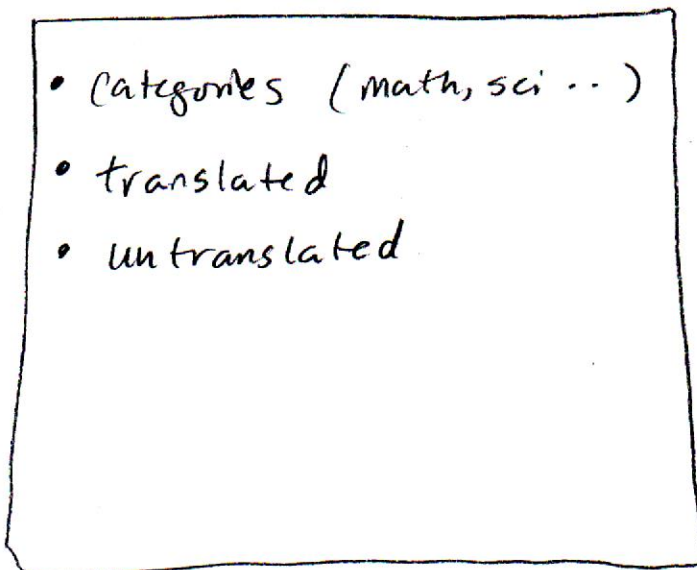 • categories (math, sci ..)
• translated
• untranslated